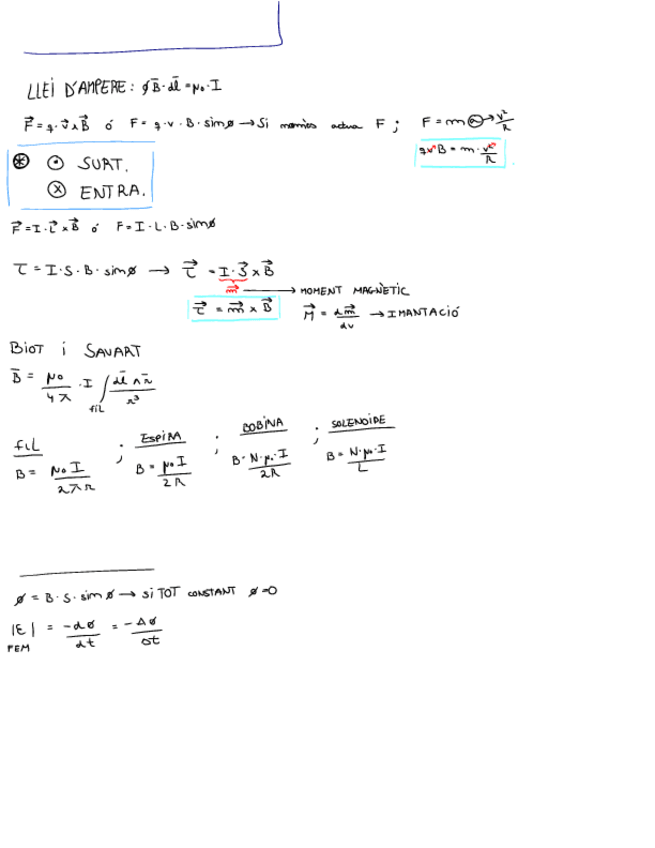 LLEI D'AMPERE: ∮B̄·dl̄ = μ₀·I
F⃗ = q·v⃗ x B⃗ ó F = q·v·B·sinø → Si només actua F ; F = m ⓐ → v²/R
qvB = m·v²/R
⊛ ⊙ SURT.
ⓧ ENTRA.
F⃗ = I·L⃗ x B⃗ ó F = I·L·B·sinø
τ = I·S·B·sinø → τ⃗ = I·S⃗ x B⃗
m⃗ → MOMENT MAGNÈTIC
τ⃗ = m⃗ x B⃗ M⃗ = dm⃗/dv → IMANTACIÓ
BIOT i SAVART
B̄ = μ₀/4π · I ∫fil dl̄ ∧ r̄/r³
fil ; ESPIRA ; BOBINA ; SOLENOIDE
B = μ₀ I/2πr B = μ₀ I/2R B = N·μ₀·I/2R B = N·μ₀·I/L
ø = B·S·sinø → si TOT CONSTANT ø=0
|ε| = -dø/dt = -Δø/Δt
FEM